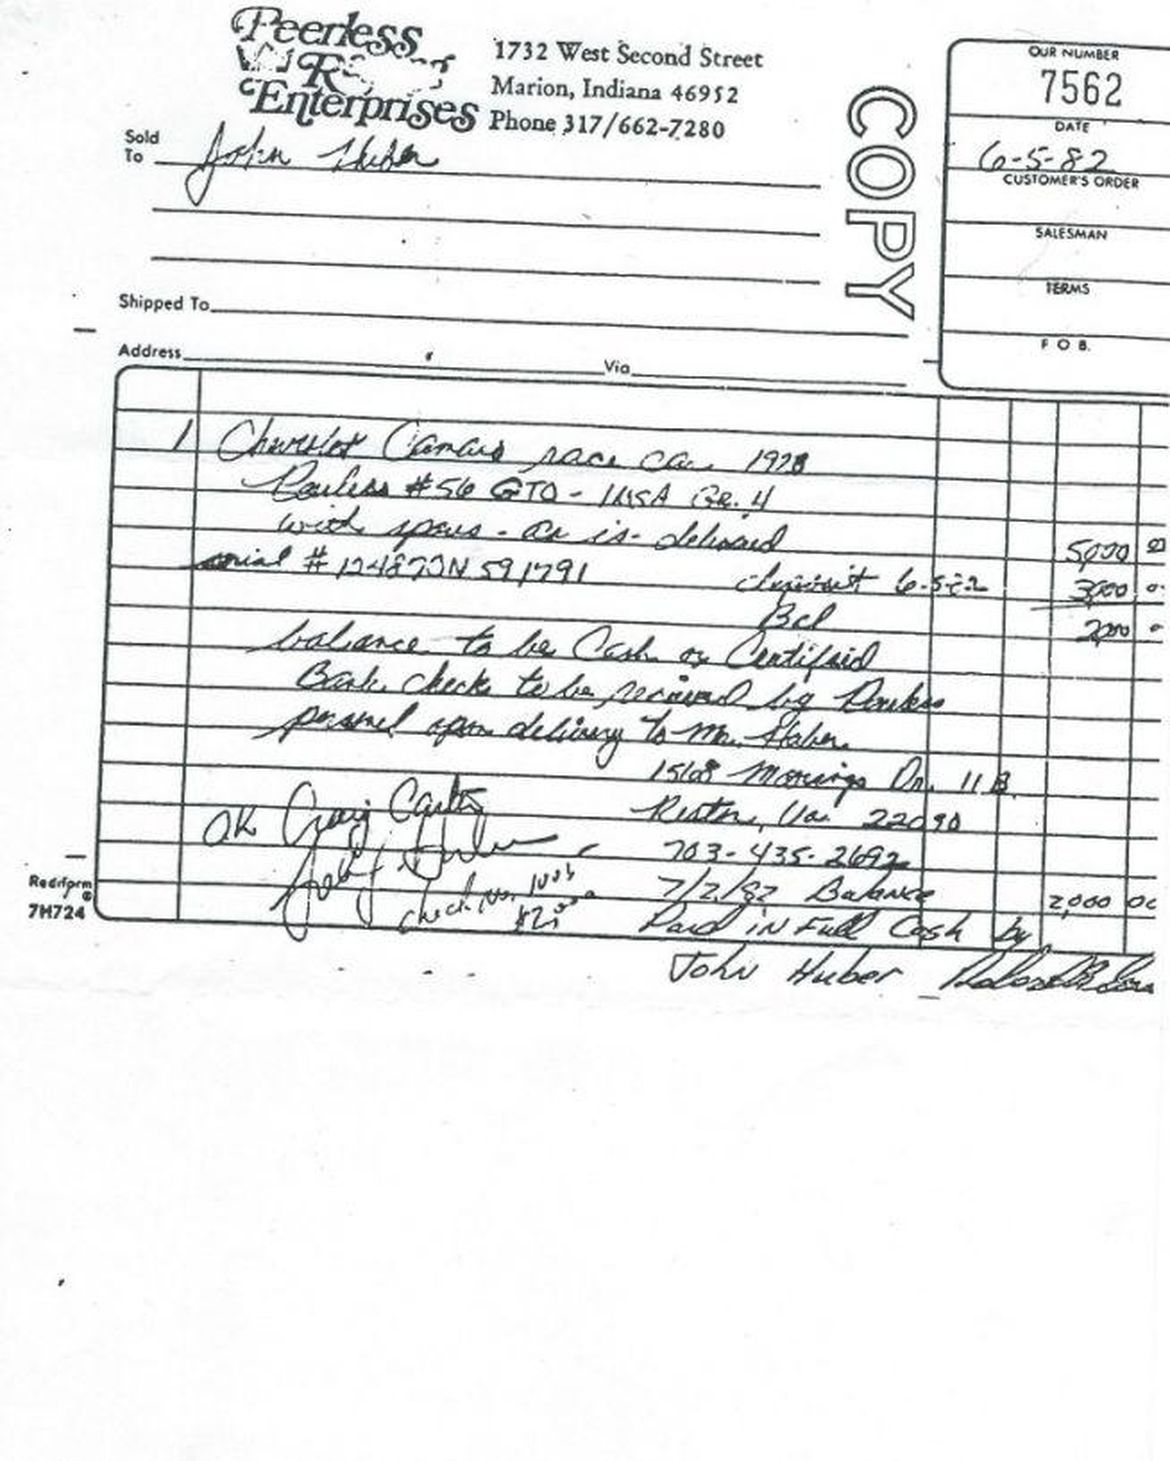 Peerless
Enterprises
1732 West Second Street
Marion, Indiana 46952
Phone 317/662-7280
COPY
OUR NUMBER
7562
DATE
6-5-82
CUSTOMER'S ORDER
SALESMAN
TERMS
F O B.
Sold
To John Huber
Shipped To
Address Via
1 Chevrolet Camaro race car 1978
Peerless #56 GTO - IMSA Gr. 4
with spares - as is - delivered 5,000 00
serial # 12487JN591791 deposit 6-5-82 3000
Bal 2000
balance to be Cash or Certified
Bank check to be received by Peerless
upon delivery to Mr. Huber
Dr. 11 B
OK Craig Reston, Va. 22090
703-435-2692
check no. 7/2/82 Balance 2,000 00
Paid in Full Cash by
John Huber
Rediform
®
7H724